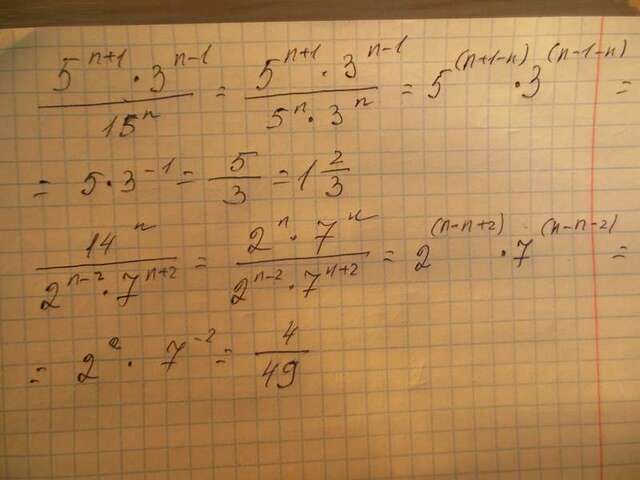 5^{n+1} · 3^{n-1} / 15^n = 5^{n+1} · 3^{n-1} / 5^n · 3^n = 5^{(n+1-n)} · 3^{(n-1-n)} =
= 5 · 3^{-1} = 5/3 = 1 2/3
14^n / 2^{n-2} · 7^{n+2} = 2^n · 7^n / 2^{n-2} · 7^{n+2} = 2^{(n-n+2)} · 7^{(n-n-2)} =
= 2^2 · 7^{-2} = 4/49